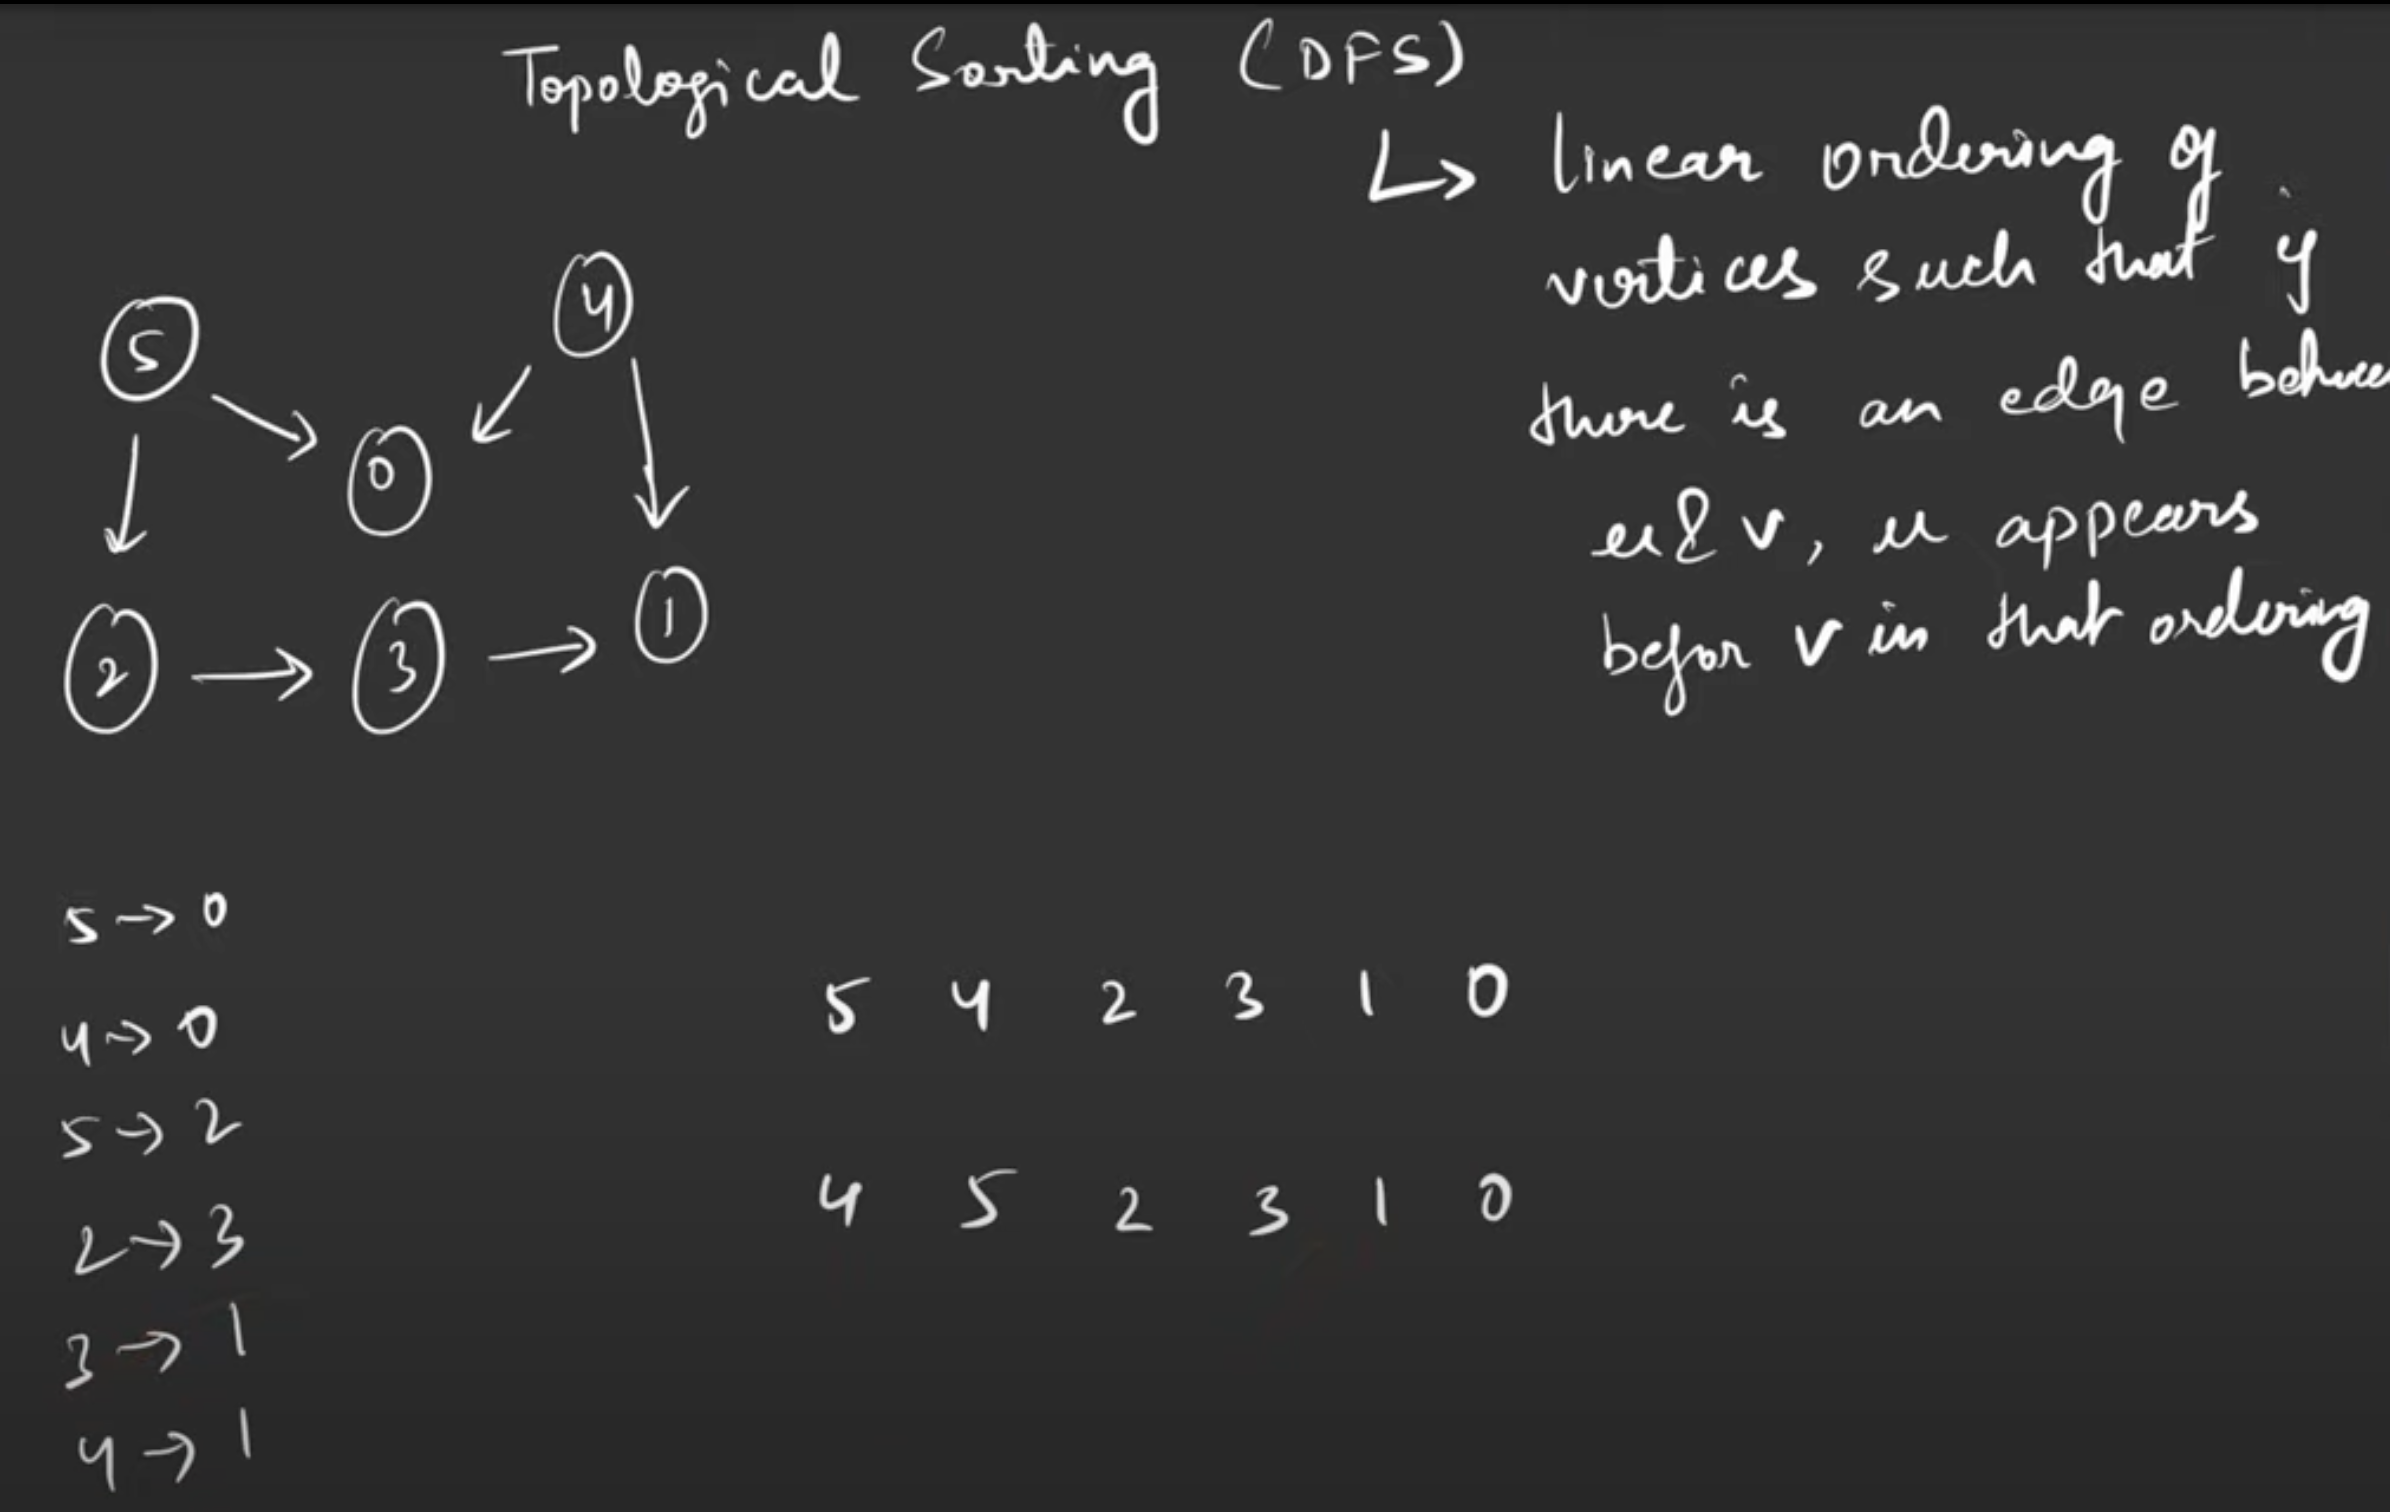 Topological Sorting (DFS)
↳ linear ordering of
vertices such that if
there is an edge between
u & v, u appears
befor v in that ordering
5
4
0
2
3
1
5 → 0
4 → 0
5 → 2
2 → 3
3 → 1
4 → 1
5 4 2 3 1 0
4 5 2 3 1 0